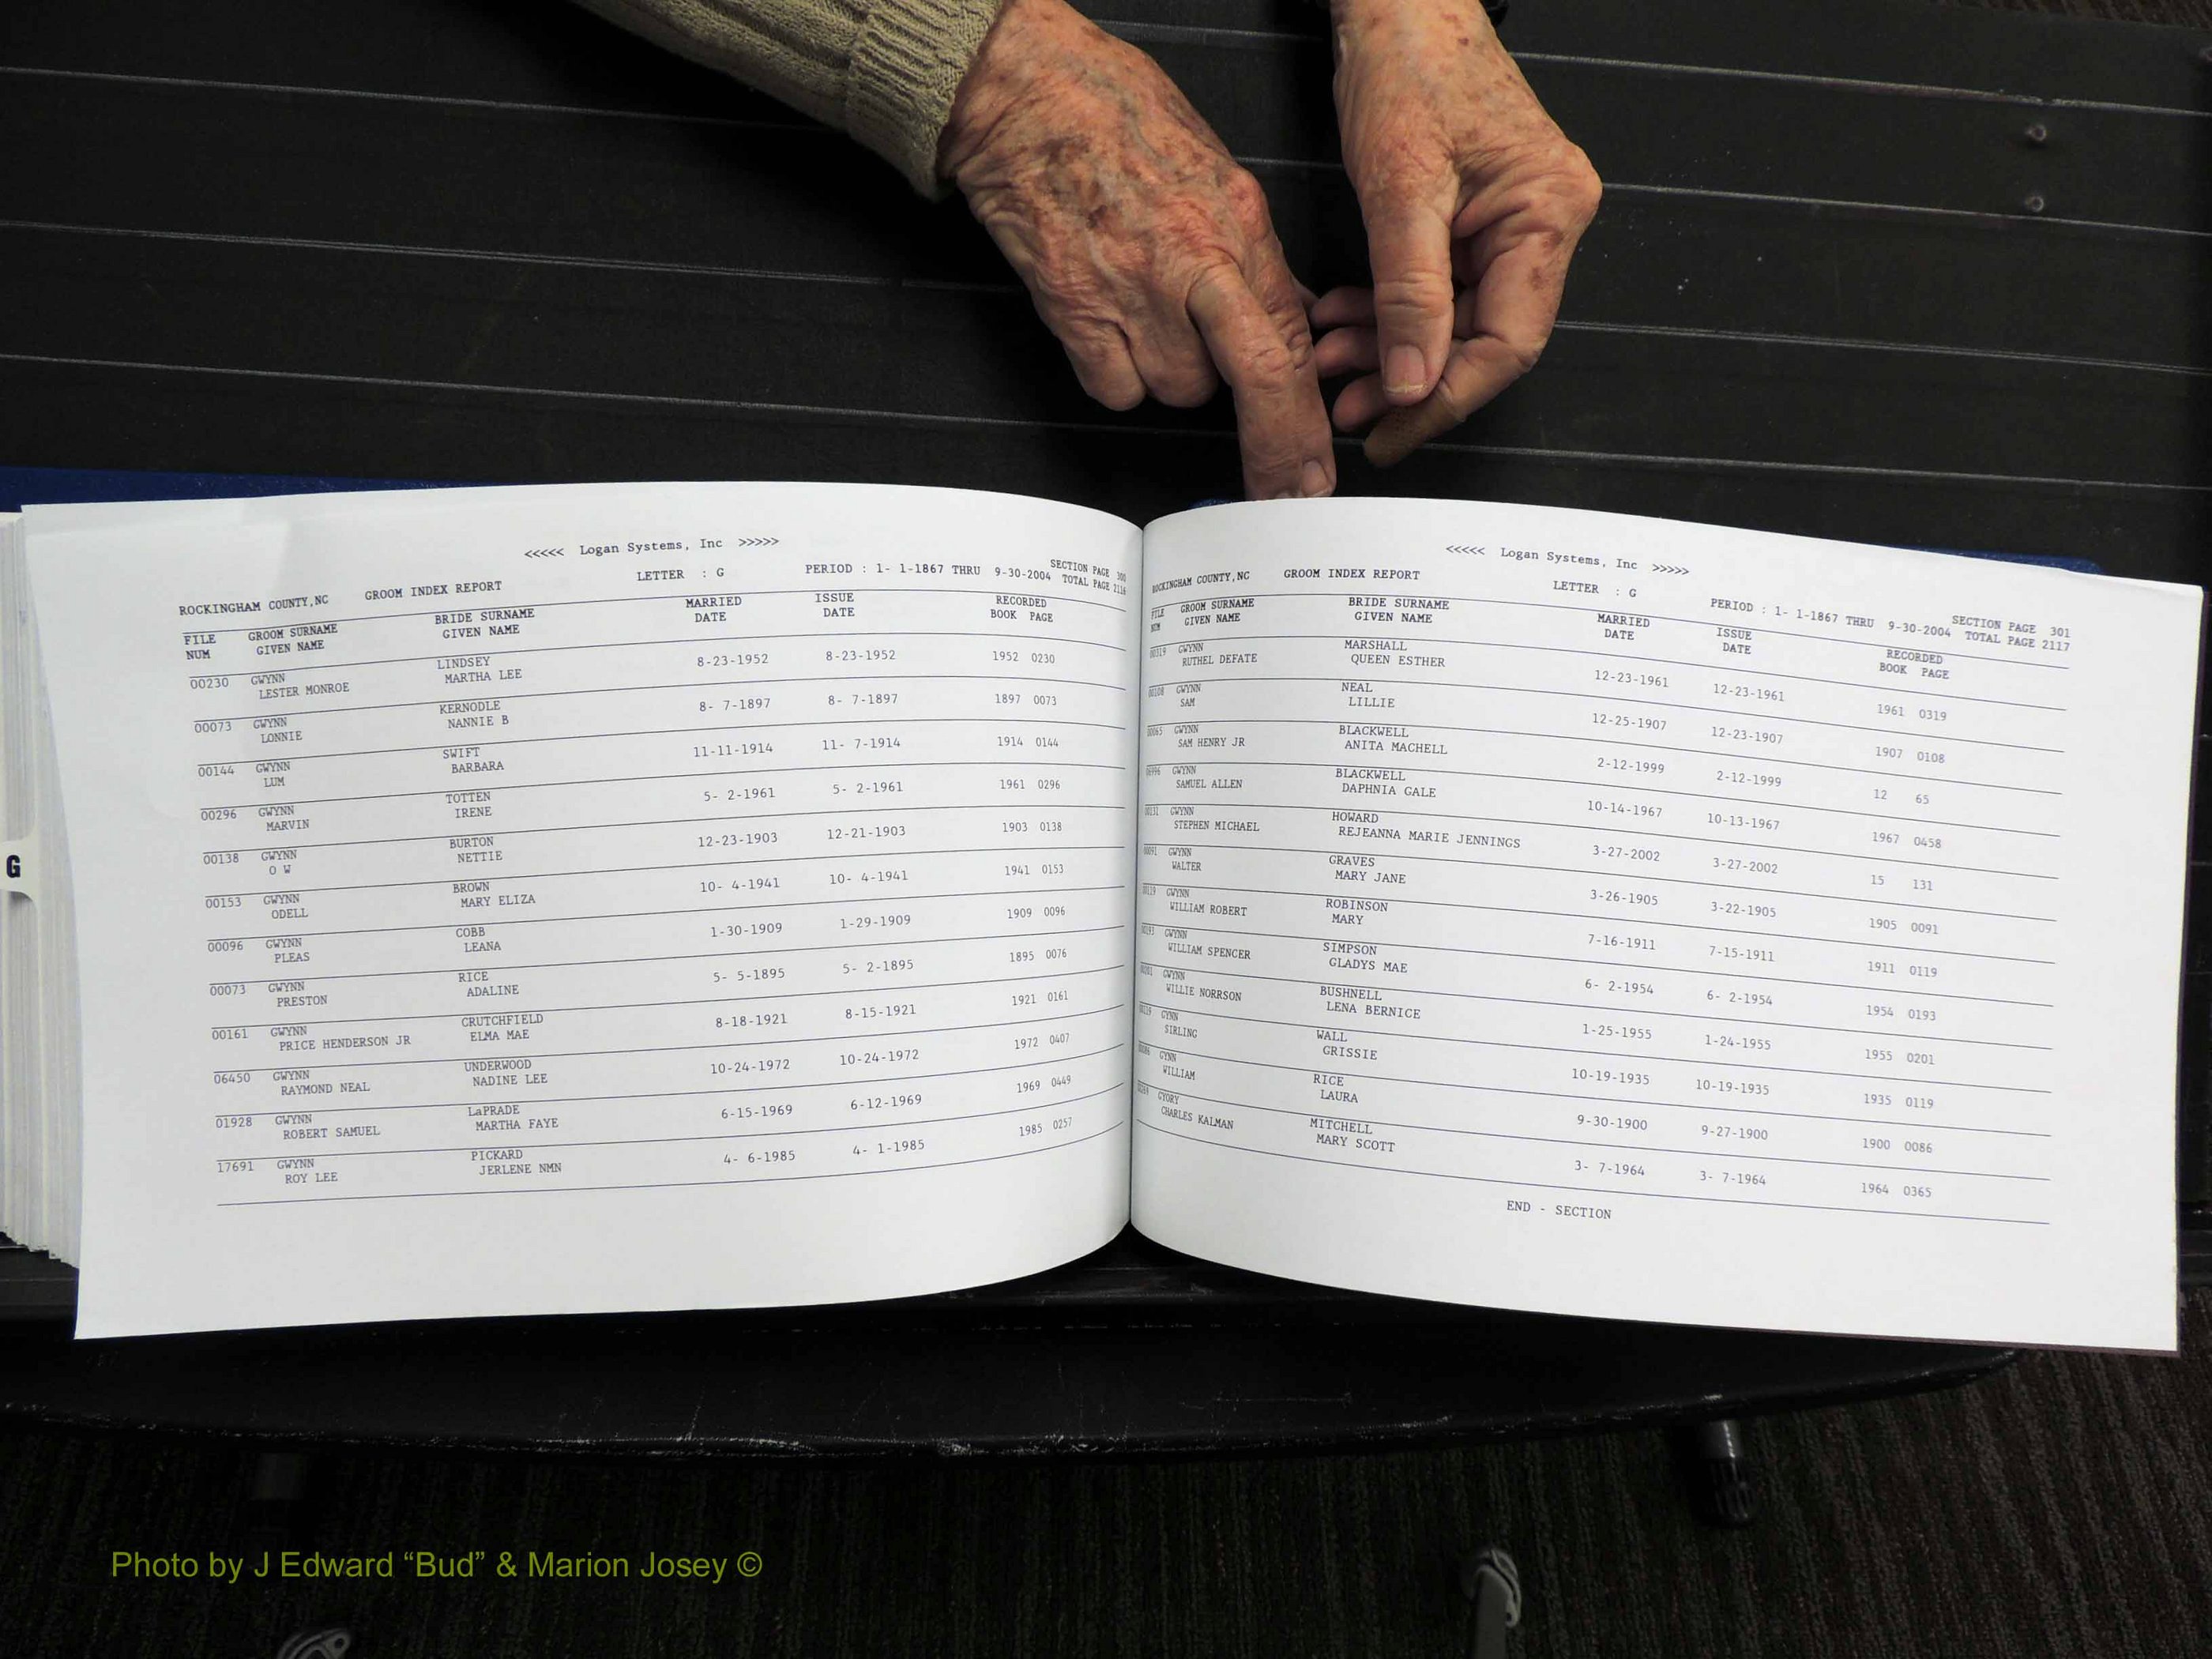 <<<<< Logan Systems, Inc >>>>>
ROCKINGHAM COUNTY,NC GROOM INDEX REPORT LETTER : G PERIOD : 1- 1-1867 THRU 9-30-2004 SECTION PAGE 300
TOTAL PAGE 2116
FILE GROOM SURNAME BRIDE SURNAME MARRIED ISSUE RECORDED
NUM GIVEN NAME GIVEN NAME DATE DATE BOOK PAGE
00230 GWYNN LINDSEY 8-23-1952 8-23-1952 1952 0230
LESTER MONROE MARTHA LEE
00073 GWYNN KERNODLE 8- 7-1897 8- 7-1897 1897 0073
LONNIE NANNIE B
00144 GWYNN SWIFT 11-11-1914 11- 7-1914 1914 0144
LUM BARBARA
00296 GWYNN TOTTEN 5- 2-1961 5- 2-1961 1961 0296
MARVIN IRENE
00138 GWYNN BURTON 12-23-1903 12-21-1903 1903 0138
O W NETTIE
00153 GWYNN BROWN 10- 4-1941 10- 4-1941 1941 0153
ODELL MARY ELIZA
00096 GWYNN COBB 1-30-1909 1-29-1909 1909 0096
PLEAS LEANA
00073 GWYNN RICE 5- 5-1895 5- 2-1895 1895 0076
PRESTON ADALINE
00161 GWYNN CRUTCHFIELD 8-18-1921 8-15-1921 1921 0161
PRICE HENDERSON JR ELMA MAE
06450 GWYNN UNDERWOOD 10-24-1972 10-24-1972 1972 0407
RAYMOND NEAL NADINE LEE
01928 GWYNN LaPRADE 6-15-1969 6-12-1969 1969 0449
ROBERT SAMUEL MARTHA FAYE
17691 GWYNN PICKARD 4- 6-1985 4- 1-1985 1985 0257
ROY LEE JERLENE NMN
G
<<<<< Logan Systems, Inc >>>>>
ROCKINGHAM COUNTY,NC GROOM INDEX REPORT LETTER : G PERIOD : 1- 1-1867 THRU 9-30-2004 SECTION PAGE 301
TOTAL PAGE 2117
FILE GROOM SURNAME BRIDE SURNAME MARRIED ISSUE RECORDED
NUM GIVEN NAME GIVEN NAME DATE DATE BOOK PAGE
00319 GWYNN MARSHALL 12-23-1961 12-23-1961 1961 0319
RUTHEL DEFATE QUEEN ESTHER
00108 GWYNN NEAL 12-25-1907 12-23-1907 1907 0108
SAM LILLIE
00065 GWYNN BLACKWELL 2-12-1999 2-12-1999 12 65
SAM HENRY JR ANITA MACHELL
GWYNN BLACKWELL 10-14-1967 10-13-1967 1967 0458
SAMUEL ALLEN DAPHNIA GALE
00131 GWYNN HOWARD 3-27-2002 3-27-2002 15 131
STEPHEN MICHAEL REJEANNA MARIE JENNINGS
00091 GWYNN GRAVES 3-26-1905 3-22-1905 1905 0091
WALTER MARY JANE
00119 GWYNN ROBINSON 7-16-1911 7-15-1911 1911 0119
WILLIAM ROBERT MARY
00193 GWYNN SIMPSON 6- 2-1954 6- 2-1954 1954 0193
WILLIAM SPENCER GLADYS MAE
00201 GWYNN BUSHNELL 1-25-1955 1-24-1955 1955 0201
WILLIE NORRSON LENA BERNICE
00119 GYNN WALL 10-19-1935 10-19-1935 1935 0119
SIRLING GRISSIE
00086 GYNN RICE 9-30-1900 9-27-1900 1900 0086
WILLIAM LAURA
GYORY MITCHELL 3- 7-1964 3- 7-1964 1964 0365
CHARLES KALMAN MARY SCOTT
END - SECTION
Photo by J Edward “Bud” & Marion Josey ©